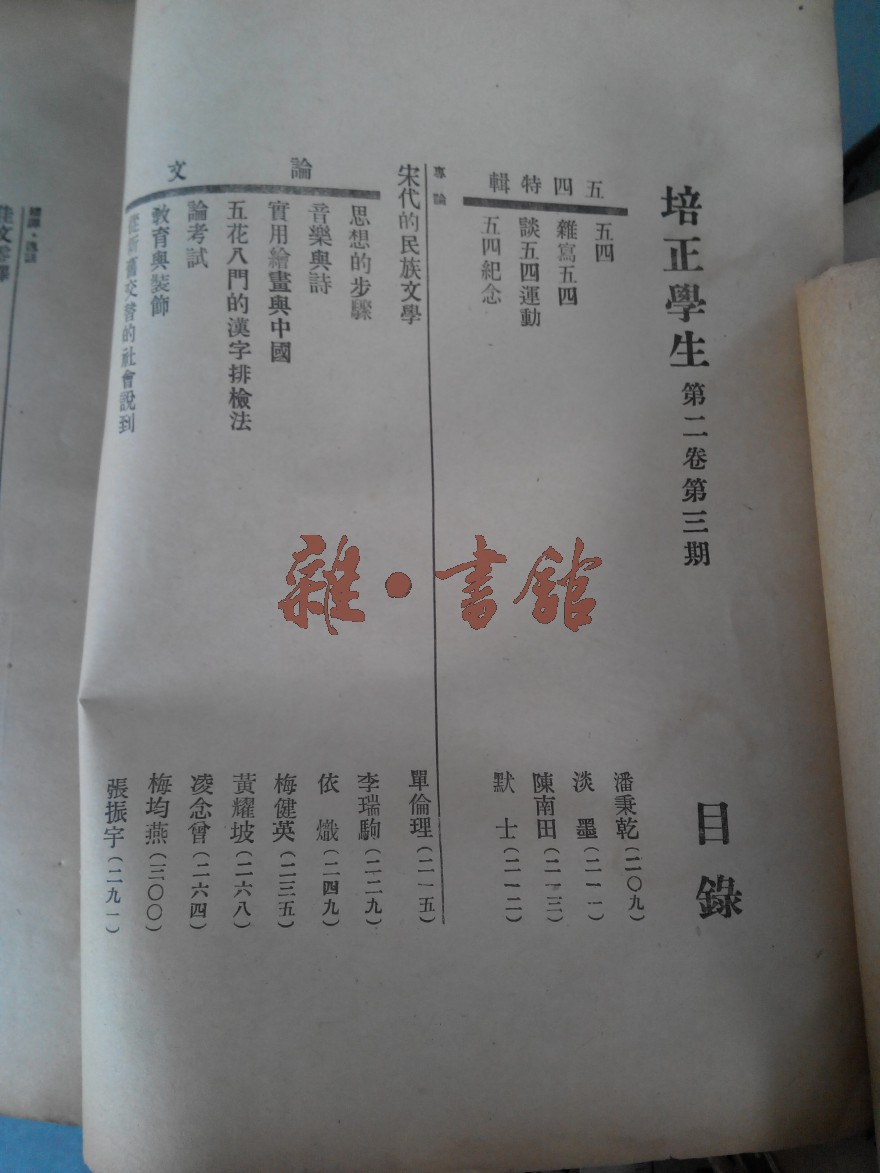 培正學生 第二卷第三期 目錄
五四特輯
五四 潘秉乾(二〇九)
雜寫五四 淡墨(二一一)
談五四運動 陳南田(二一三)
五四紀念 默士(二一二)
專論
宋代的民族文學 單倫理(二一五)
論文
思想的步驟 李瑞駒(二二九)
音樂與詩 依熾(二四九)
實用繪畫與中國 梅健英(二三五)
五花八門的漢字排檢法 黃耀坡(二六八)
論考試 凌念曾(二六四)
教育與裝飾 梅均燕(三〇〇)
從新舊交替的社會說到 張振宇(二九一)
雜·書館